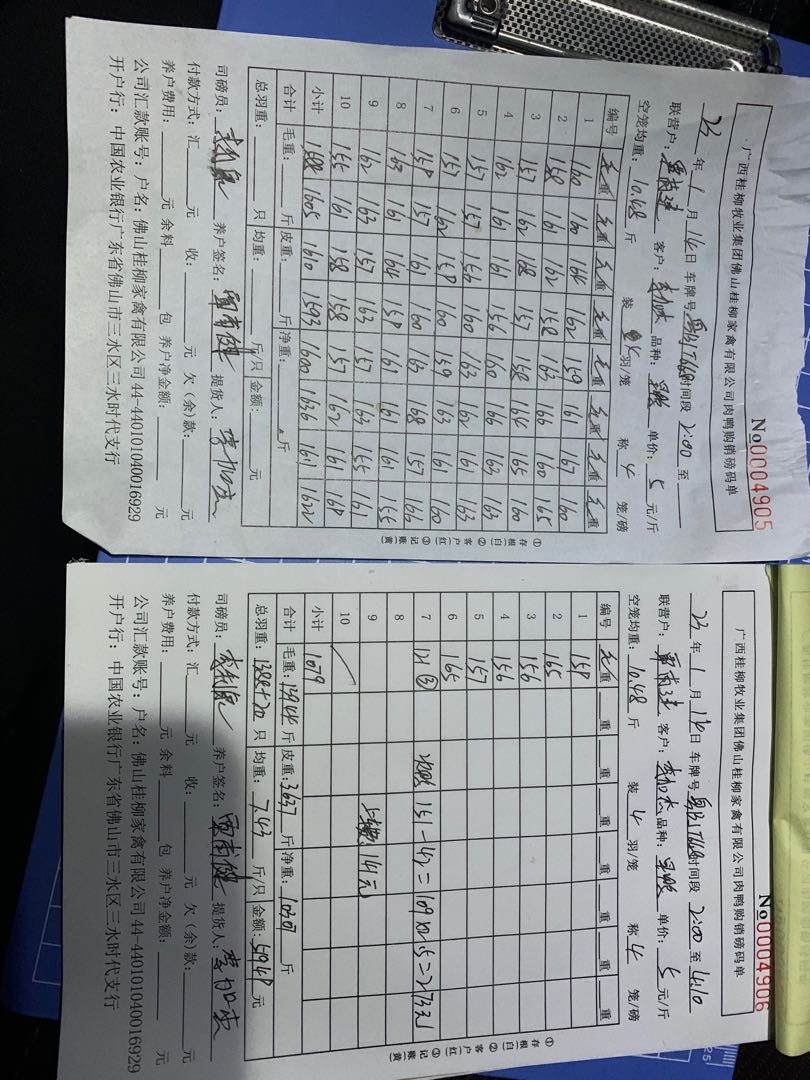 No 0004905
广西桂柳牧业集团佛山桂柳家禽有限公司肉鸭购销磅码单
年 1 月 14 日 车牌号 时间段 2:00 至
联营户: 客户: 品种: 单价: 5 元/斤
空笼均重: 10.48 斤 装 羽/笼 称 4 笼/磅
编号 毛重 毛重 毛重 毛重 毛重 毛重 毛重 毛重
1 160 160 164 162 159 161 167 160
2 158 161 162 158 163 166 160 165
3 157 162 168 157 158 164 165 160
4 162 161 161 156 160 166 163 163
5 157 157 156 160 163 162 161 163
6 157 162 158 160 159 163 161 160
7 158 157 161 160 163 168 157 166
8 163 161 164 158 161 161 161 155
9 162 163 157 163 157 163 155 161
10 155 161 158 158 157 162 161 168
小计 1605 1610 1593 1600 1636 1611 1622
合计 毛重: 斤 皮重: 斤 净重: 斤
总羽重: 只 均重: 斤/只 金额: 元
司磅员: 养户签名: 提货人:
付款方式:汇 元 收: 元 欠(余)款: 元
养户费用: 元 余料 包 养户净金额: 元
公司汇款账号:户名:佛山桂柳家禽有限公司 44-440101040016929
开户行:中国农业银行广东省佛山市三水区三水时代支行
①存根(白) ②客户(红) ③记账(黄)
No 0004906
广西桂柳牧业集团佛山桂柳家禽有限公司肉鸭购销磅码单
23 年 1 月 14 日 车牌号 时间段 2:00 至 4:10
联营户: 客户: 品种: 单价: 5 元/斤
空笼均重: 10.48 斤 装 4 羽/笼 称 4 笼/磅
编号 毛重 重 重 重 重 重 重 重
1 158
2 165
3 156
4 156
5 157
6 165
7 121 ③ 151-42=109×2.5=273元
8
9 14元
10
小计 1079
合计 毛重: 13944 斤 皮重: 3637 斤 净重: 10307 斤
总羽重: 1388 只 均重: 7.43 斤/只 金额: 元
司磅员: 养户签名: 提货人:
付款方式:汇 元 收: 元 欠(余)款: 元
养户费用: 元 余料 包 养户净金额: 元
公司汇款账号:户名:佛山桂柳家禽有限公司 44-440101040016929
开户行:中国农业银行广东省佛山市三水区三水时代支行
①存根(白) ②客户(红) ③记账(黄)